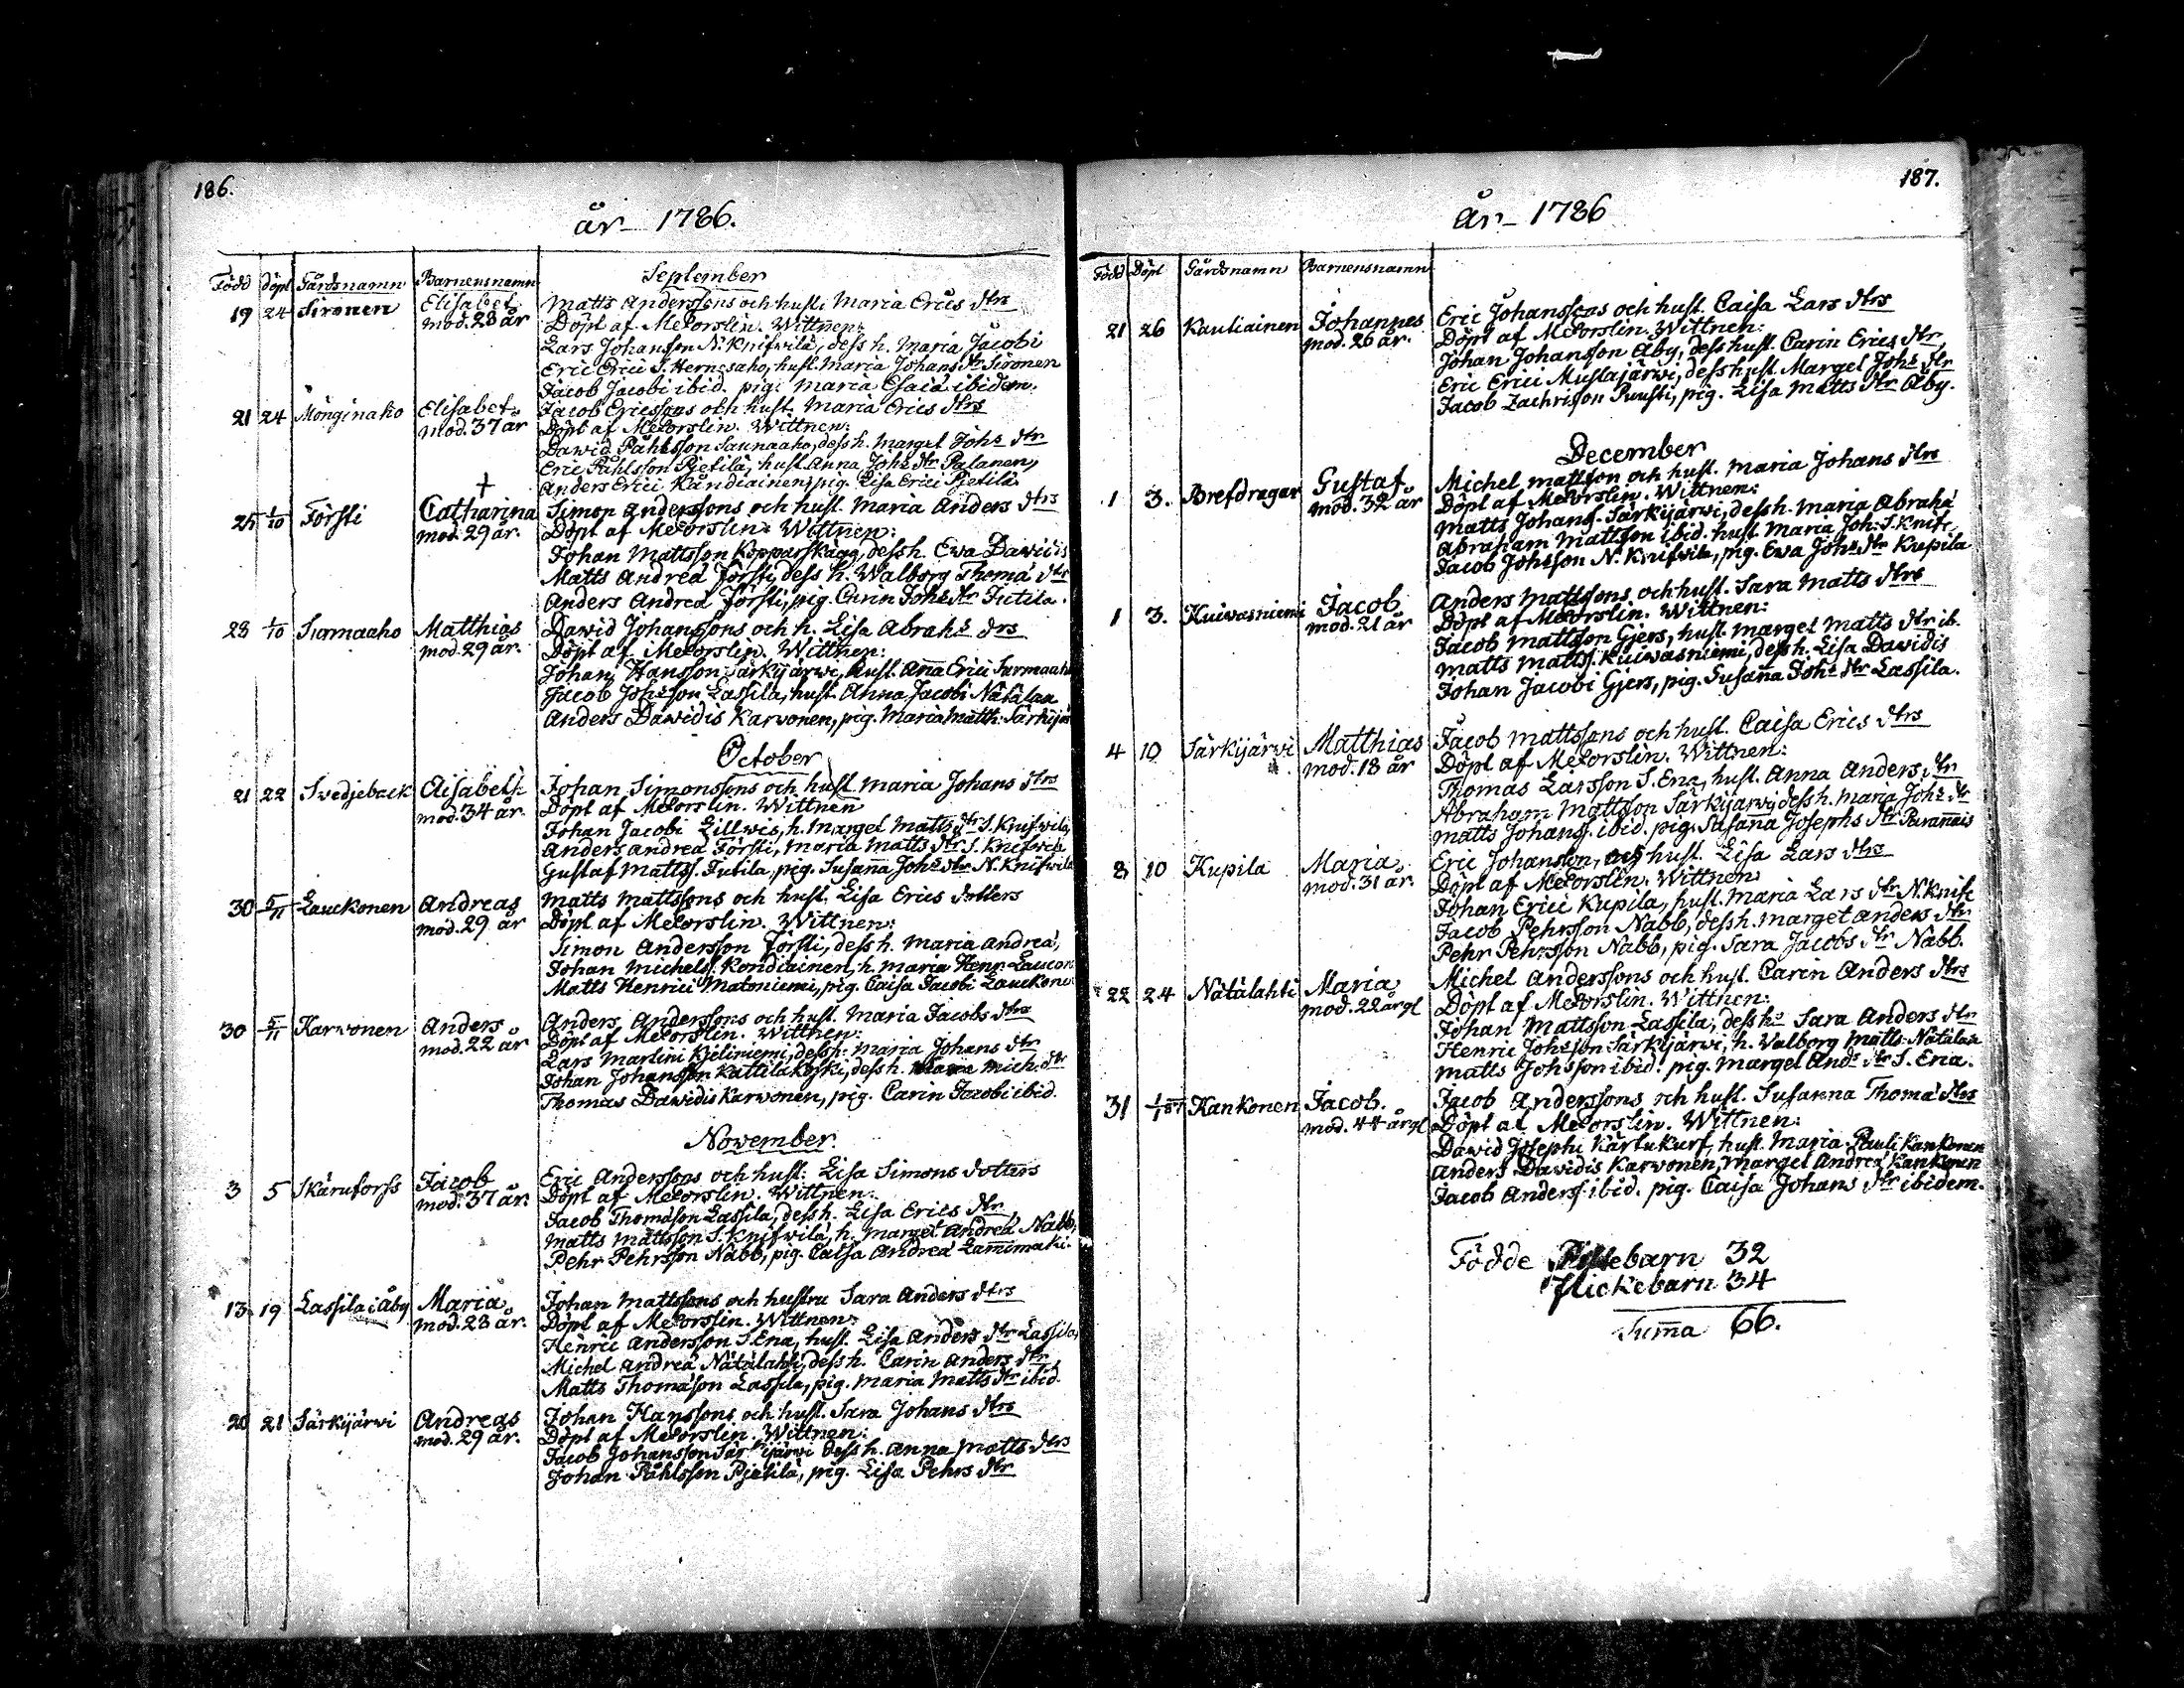 186.
år 1786.
Född Döpt Gårdsnamn Barnensnamn September
19 24 Sironen Elisabet Matts Anderssons och hust. Maria Erics dtrs
mod. 28 år Döpt af Mełorslin. Wittnen:
Lars Johansson N. Knifwilä, dess h. Maria Jacobi
Eric Erici S. Hernesaho, hust. Maria Johans dtr Sironen
Jacob Jacobi ibid. pig. Maria Esaiæ ibidem.
21 24 Mönginaho Elisabet Jacob Ericssons och hust. Maria Erics dtrs
mod. 37 år Döpt af Mełorslin. Wittnen:
Dawid Påhlsson Saunaaho, dess h. Marget Johs dtr
Eric Påhlsson Pjetilä, hust. Anna Johs dtr Palanen,
Anders Erici Kåndiainen, pig. Lisa Erici Pjetilä
†
25 1/10 Försti Catharina Simon Anderssons och hust. Maria Anders dtrs
mod. 29 år. Döpt af Mełorslin. Wittnen:
Johan Mattsson Kopparskägg, dess h. Ewa Dawidis
Matts Andreæ Försti, dess h. Walborg Thomæ dtr
Anders Andreæ Försti, pig. Carin Johs dtr Futila.
28 1/10 Surmaaho Matthias Dawid Johanssons och h. Lisa Abrahs dtrs
mod. 29 år. Döpt af Mełorslin. Wittnen:
Johan Hansson Särkijärwi, hust. Anna Erici Surmaaho
Jacob Johsson Lassila, hust. Anna Jacobi Nätälaa
Anders Dawidis Karwonen, pig. Maria Matth. Särkijär
October
21 22 Svedjeback Elisabeth Johan Simonssons och hust Maria Johans dtrs
mod. 34 år. Döpt af Mełorslin. Wittnen
Johan Jacobi Lillwis, h. Marget Matts dtr S. Knifwilä,
Anders Andreæ Försti, Maria Matts dtr S. Knifwilä
Gustaf Mattss. Futila, pig. Susanna Johs dtr N. Knifwilä
30 5/11 Lauckonen Andreas Matts Mattssons och hust. Lisa Erics dotters
mod. 29 år Döpt af Mełorslin. Wittnen:
Simon Andersson Försti, dess h. Maria Andreæ,
Johan Michels. Kondiainen, h. Maria Henr. Laucon
Matts Henrici Matoniemi, pig. Caisa Jacobi Lauckone
30 5/11 Karwonen Anders Anders Anderssons och hust. Maria Jacobs dtrs
mod. 22 år Döpt af Mełorslin. Wittnen:
Lars Martini Kjeliniemi, dess h. Maria Johans dtr
Johan Johansson Kattilakoski, dess h. Maria Mich. dtr
Thomas Dawidis Karwonen, pig. Carin Jacobi ibid.
November
3 5 Skäruforss Jacob Eric Anderssons och hust: Lisa Simons dotters
mod. 37 år. Döpt af Mełorslin. Wittnen:
Jacob Thomæson Lassila, dess h. Lisa Erics dtr,
Matts Mattsson S. Knifwilä, h. Marget Andreæ Nabb,
Pehr Pehrsson Nabb, pig. Caisa Andreæ Lammimäki.
13 19 Lassila i Åby Maria Johan Mattssons och hustru Sara Anders dtrs
mod. 28 år. Döpt af Mełorslin. Wittnen:
Henric Andersson S. Ena, hust. Lisa Anders dtr Lassila,
Michel Andreæ Nätälahti, dess h. Carin Anders dtr,
Matts Thomæson Lassila, pig. Maria Matts dtr ibid.
20 21 Särkijärwi Andreas Johan Hanssons och hust. Sara Johans dtrs
mod. 29 år. Döpt af Mełorslin. Wittnen:
Jacob Johansson Särkijärwi dess h. Anna Matts dtrs
Johan Påhlsson Pjetilä, pig. Lisa Pehrs dtr
187.
År 1786
Född Döpt Gårdsnamn Barnensnamn
21 26 Kauliainen Johannes Eric Johanssons och hust. Caisa Lars dtrs
mod. 26 år. Döpt af Mełorslin. Wittnen:
Johan Johansson Åby, dess hust. Carin Erics dtr,
Eric Erici Mustajärwi, dess hust. Marget Johs dtr
Jacob Zachrisson Puusti, pig. Lisa Matts dtr Åby.
December
1 3. Brefdragar Gustaf Michel Mattsson och hust. Maria Johans dtrs
mod. 32 år Döpt af Mełorslin. Wittnen:
Matts Johans. Särkijärwi, dess h. Maria Abrahæ
Abraham Mattsson ibid. hust Maria Joh: S. Knife,
Jacob Johsson N. Knifwilä, pig. Ewa Johs dtr Kupila
1 3. Kuiwasniemi Jacob Anders Mattssons och hust. Sara Matts dtrs
mod. 21 år Döpt af Mełorslin. Wittnen:
Jacob Mattsson Gjers, hust. Marget Matts dtr ib.
Matts Mattss. Kuiwasniemi, dess h. Lisa Dawidis
Johan Jacobi Gjers, pig. Susanna Johs dtr Lassila.
4 10 Särkijärwi Matthias Jacob Mattssons och hust. Caisa Erics dtrs
mod. 18 år Döpt af Mełorslin. Wittnen:
Thomas Larsson S. Ena, hust. Anna Anders dtr
Abraham Mattsson Särkijärwi, dess h. Maria Johs dtr
Matts Johanss. ibid. pig. Susanna Josephs dtr
8 10 Kupila Maria Eric Johansson, och hust. Lisa Lars dtrs
mod. 31 år. Döpt af Mełorslin. Wittnen:
Johan Erici Kupila, hust. Maria Lars dtr N. Knife
Jacob Pehrsson Nabb, dess h. Marget Anders dtr
Pehr Pehrsson Nabb, pig. Sara Jacobs dtr Nabb.
22 24 Nätälahti Maria Michel Anderssons och hust. Carin Anders dtrs
mod. 22 årgl Döpt af Mełorslin. Wittnen:
Johan Mattsson Lassila, dess h. Sara Anders dtr
Henric Johsson Särkijärwi, h. Walborg Matts Nätälaa
Matts Johsson ibid. pig. Marget Ands dtr S. Ena.
31 1/1 87 Kankonen Jacob. Jacob Anderssons och hust. Susanna Thomæ dtrs
mod. 44 årgl Döpt af Mełorslin. Wittnen:
Dawid Josephi Kärtukurf, hust. Maria Pauli Kankonen
Anders Dawidis Karwonen, Marget Andreæ Kankonen
Jacob Anderss. ibid. pig. Caisa Johans dtr ibidem.
Födde Piltebarn 32
Flickebarn 34
Summa 66.